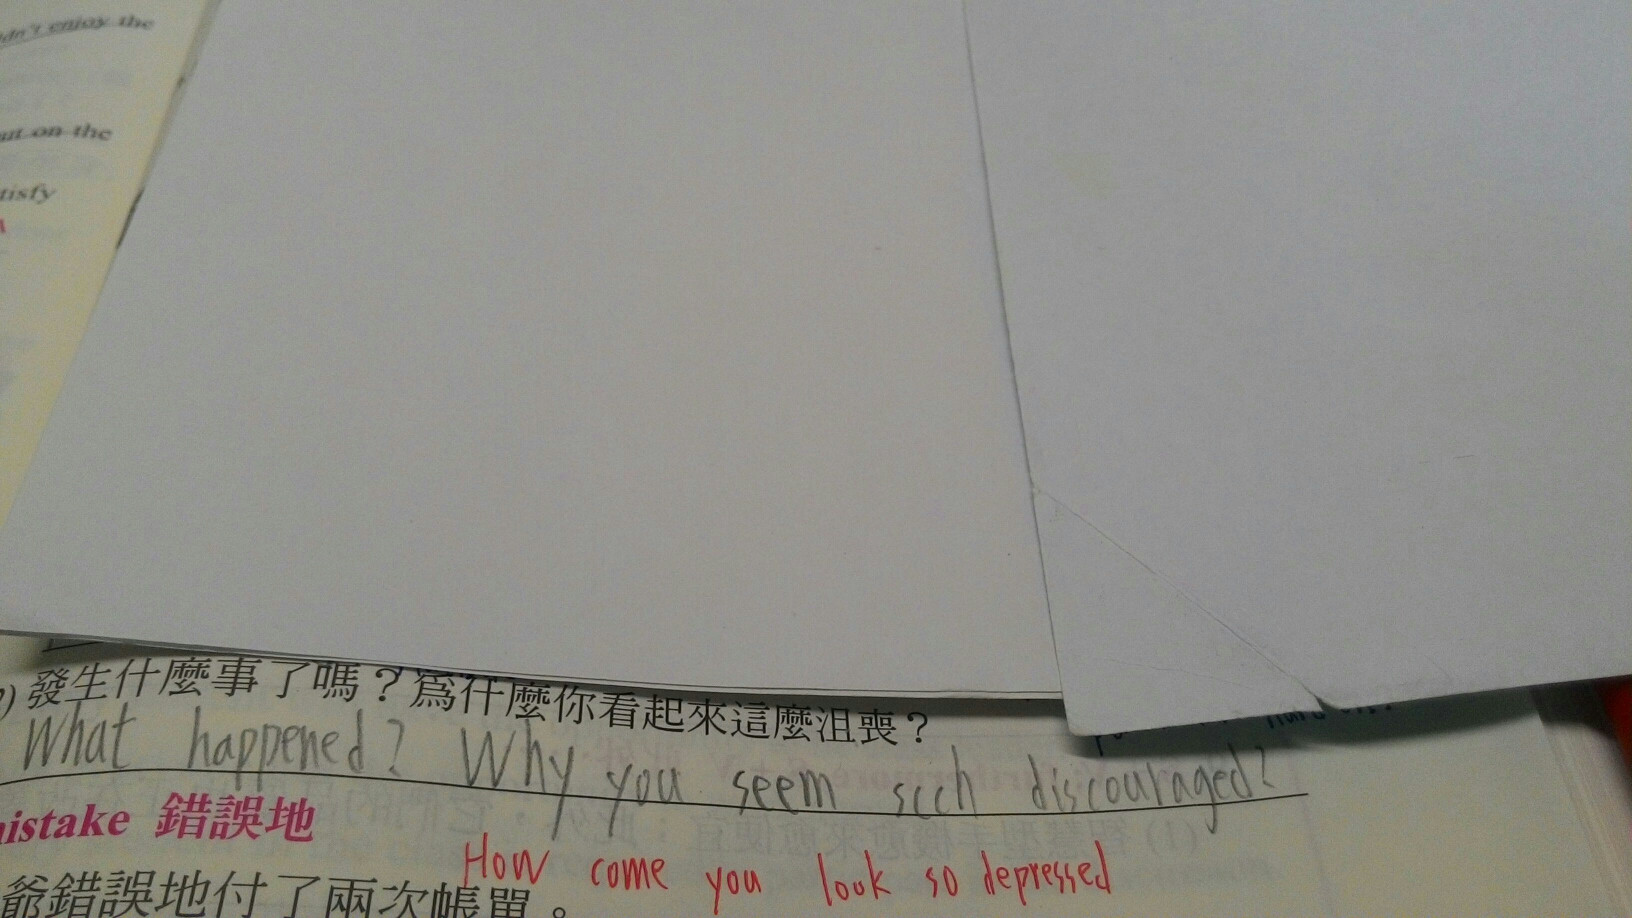 enjoy the
on the
發生什麼事了嗎？為什麼你看起來這麼沮喪？
What happened? Why you seem scch discouraged?
錯誤地
How come you look so depressed
爺錯誤地付了兩次帳單。